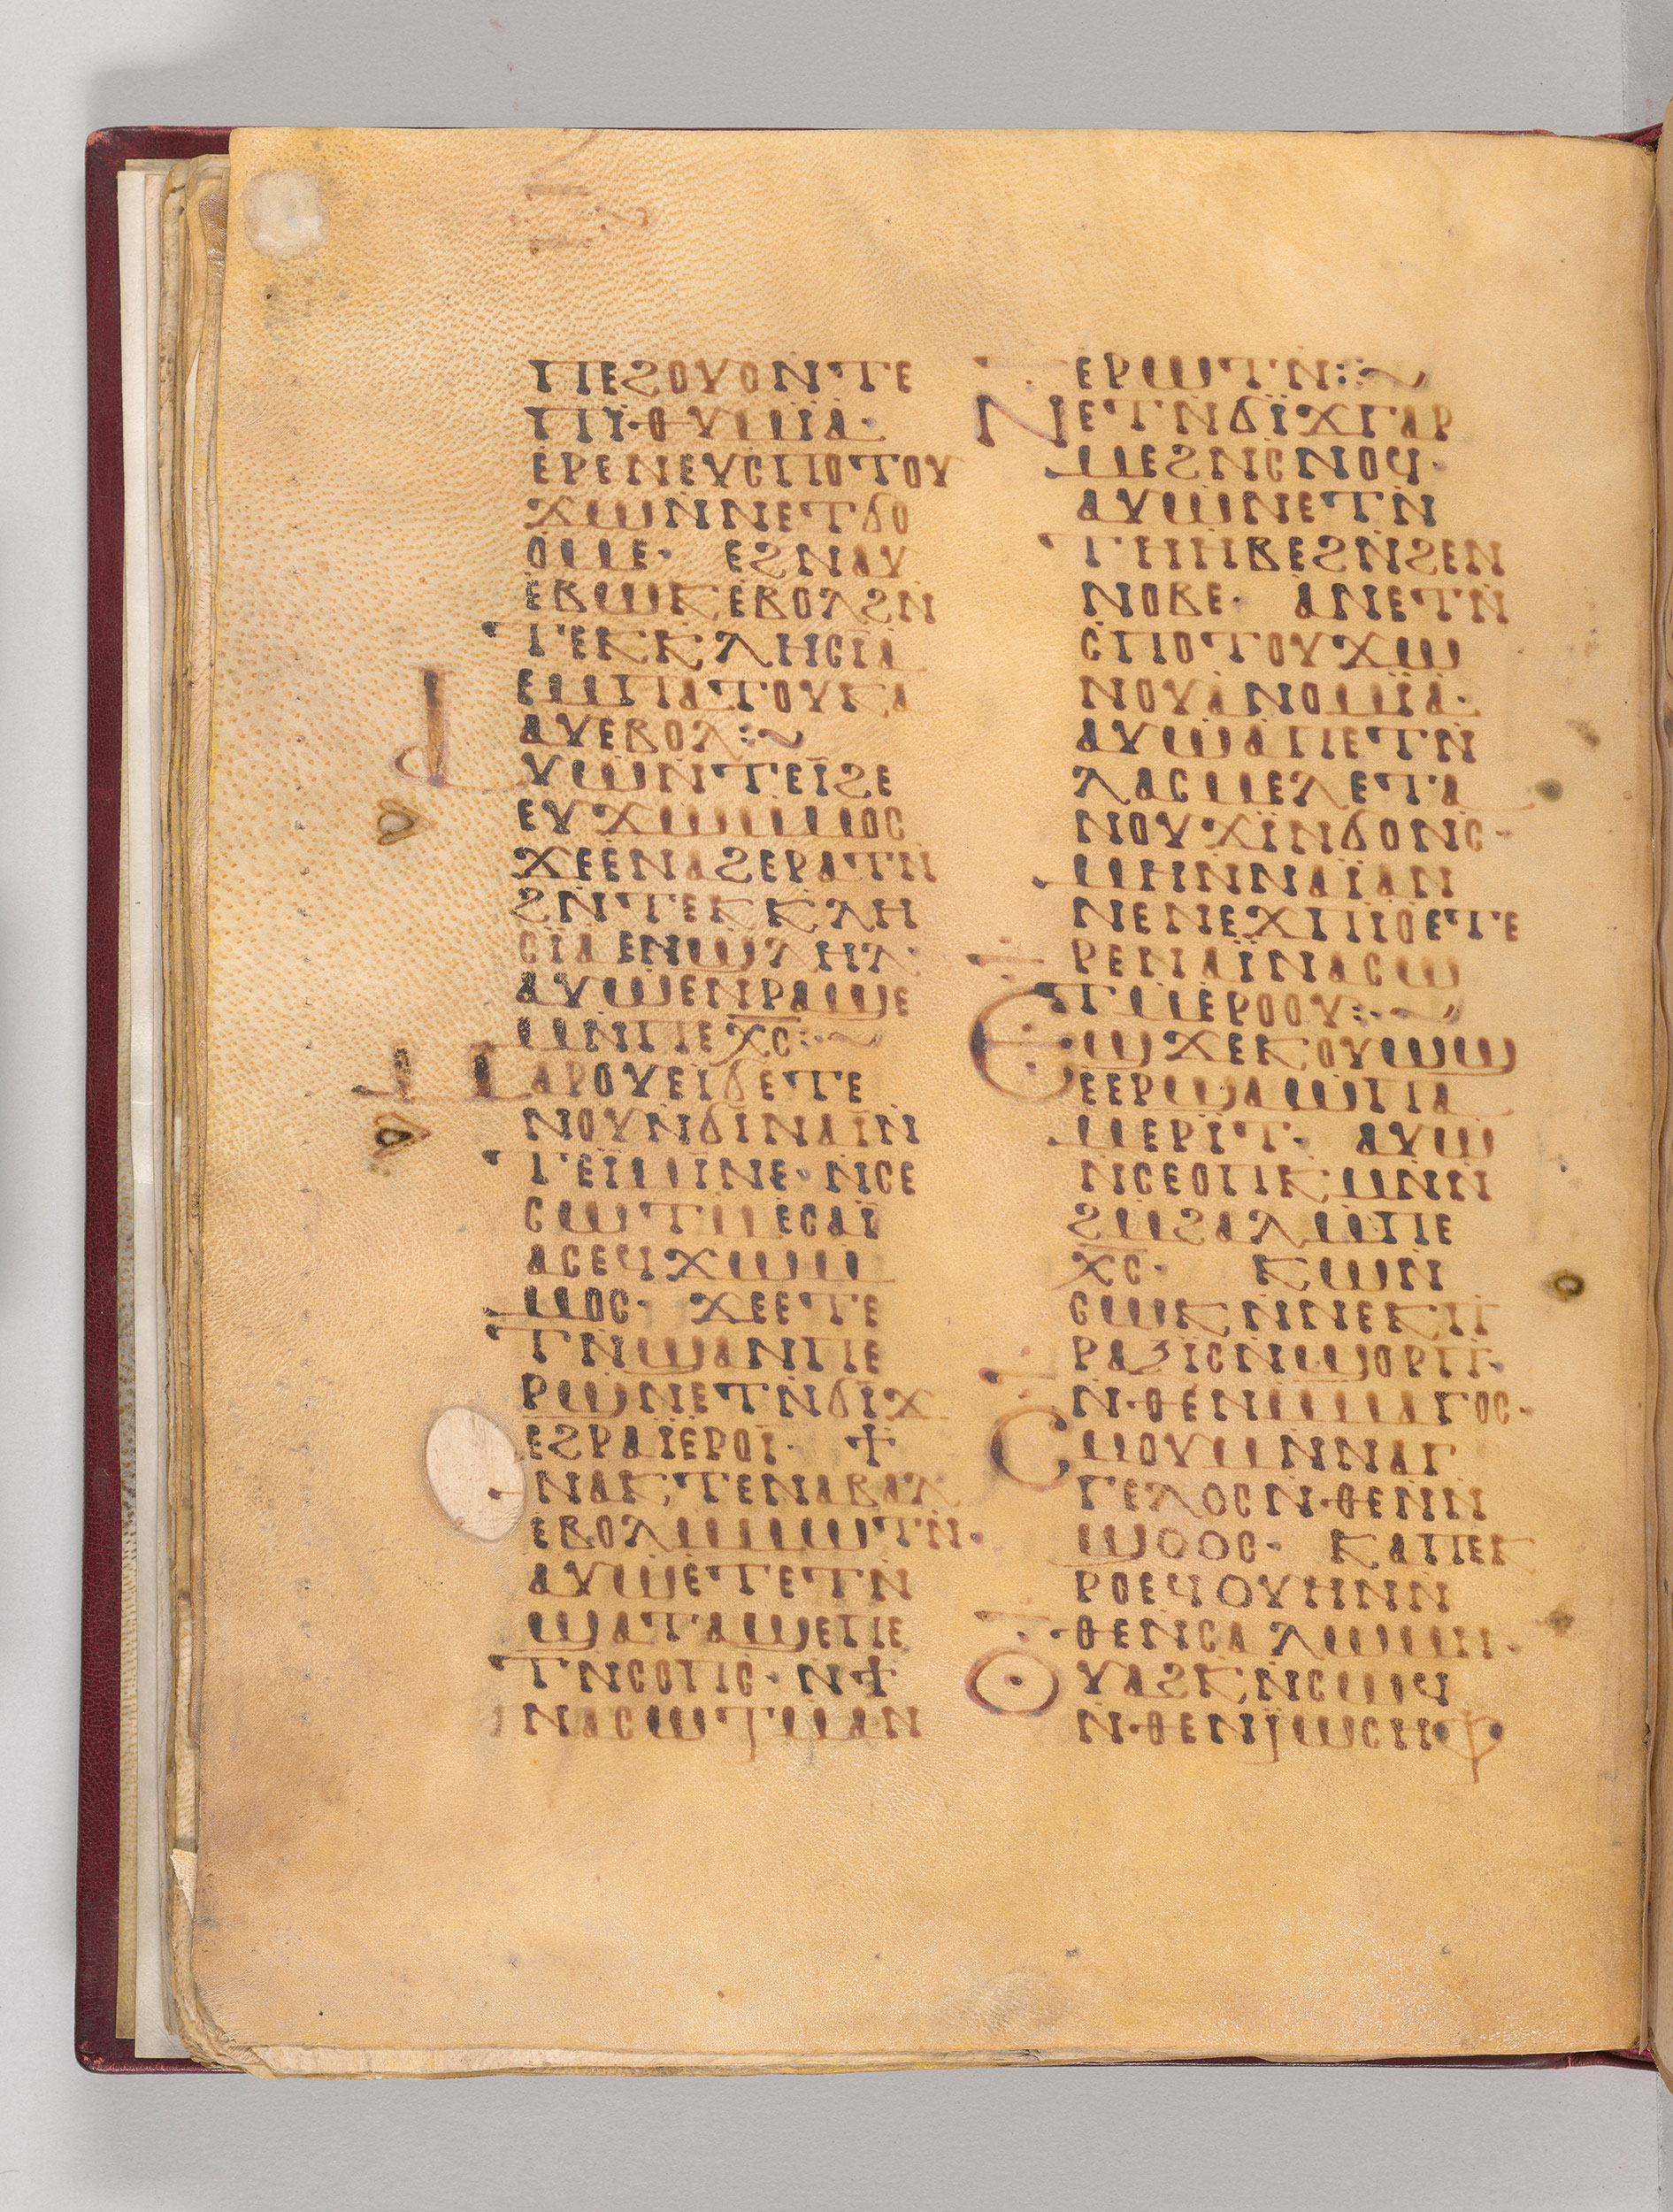 ⲡⲉϩⲟⲩⲟⲛⲧⲉ
ⲡⲓⲑⲩⲙⲓⲁ·
ⲉⲣⲉⲛⲉⲩⲥⲡⲟⲧⲟⲩ
ϫⲱⲛⲛⲉⲧϭⲟ
ⲟⲙⲉ· ⲉϩⲛⲁⲩ
ⲉⲃⲱⲕⲉⲃⲟⲗϩⲛ
ⲧⲉⲕⲕⲗⲏⲥⲓⲁ
ⲉⲙⲡⲁⲧⲟⲩⲕⲁ
ⲁⲩⲉⲃⲟⲗ:~
ⲁⲩⲱⲛⲧⲉⲓϩⲉ
ⲉⲩϫⲱⲙⲙⲟⲥ
ϫⲉⲉⲛⲁϩⲉⲣⲁⲧⲛ
ϩⲛⲧⲉⲕⲕⲗⲏ
ⲥⲓⲁⲉⲛϣⲗⲏⲗ·
ⲁⲩⲱⲉⲛⲣⲁϣⲉ
ⲙⲛⲡⲉⲭ̅ⲥ̅:~
ⲙⲁⲣⲟⲩⲉⲓϭⲉⲧⲉ
ⲛⲟⲩⲛϭⲓⲛⲁⲓⲛ
ⲧⲉⲓⲙⲓⲛⲉ· ⲛⲥⲉ
ⲥⲱⲧⲙⲉⲥⲁⲓ̈
ⲁⲥⲉϥϫⲱⲙ
ⲙⲟⲥ· ϫⲉⲉⲧⲉ
ⲧⲛϣⲁⲛⲡⲉ
ⲣϣⲛⲉⲧⲛϭⲓϫ
ⲉϩⲣⲁⲓ̈ⲉⲣⲟⲓ̈· ϯ
ⲛⲁⲕⲧⲉⲛⲁⲃⲁⲗ
ⲉⲃⲟⲗⲙⲙⲱⲧⲛ·
ⲁⲩⲱⲉⲧⲉⲧⲛ
ϣⲁⲧⲁϣⲉⲡⲉ
ⲧⲛⲥⲟⲡⲥ· ⲛϯ
ⲛⲁⲥⲱⲧⲙⲁⲛ
ⲉⲣⲱⲧⲛ:~
ⲛⲉⲧⲛϭⲓϫⲅⲁⲣ
ⲙⲉϩⲛⲥⲛⲟϥ·
ⲁⲩⲱⲛⲉⲧⲛ
ⲧⲏⲏⲃⲉϩⲛϩⲉⲛ
ⲛⲟⲃⲉ· ⲁⲛⲉⲧⲛ
ⲥⲡⲟⲧⲟⲩϫⲱ
ⲛⲟⲩⲁⲛⲟⲙⲓ̈ⲁ·
ⲁⲩⲱⲁⲡⲉⲧⲛ
ⲗⲁⲥⲙⲉⲗⲉⲧⲁ
ⲛⲟⲩϫⲓⲛϭⲟⲛⲥ·
ⲙⲏⲛⲛⲁⲓ̈ⲁⲛ
ⲛⲉⲛⲉϫⲡⲓⲟⲉⲧⲉ
ⲣⲉⲛⲁⲓ̈ⲛⲁⲥⲱ
ⲧⲙⲉⲣⲟⲟⲩ:~
ⲉϣϫⲉⲕⲟⲩⲱϣ
ⲉⲉⲣϣⲁⲙⲡⲁ
ⲙⲉⲣⲓⲧ· ⲁⲩⲱ
ⲛⲥⲉⲟⲡⲕⲙⲛⲛ
ϩⲙϩⲁⲗⲙⲡⲉ
ⲭ̅ⲥ̅· ⲕⲱⲛ
ⲥⲱⲕⲛⲛⲉⲕⲡ
ⲣⲁⲝⲓⲥⲛϣⲟⲣⲡ·
ⲛⲑⲉⲛⲙⲙⲁⲅⲟⲥ·
ⲥⲙⲟⲩⲙⲛⲛⲁⲅ
ⲅⲉⲗⲟⲥⲛⲑⲉⲛⲛ
ϣⲟⲟⲥ· ⲕⲁⲡⲉⲕ
ⲣⲟⲉϥⲟⲩⲏⲛⲛ
ⲑⲉⲛⲥⲁⲗⲱⲙⲏ·
ⲟⲩⲁϩⲕⲛⲥⲱϥ
ⲛⲑⲉⲛⲓⲱⲥⲏⲫ